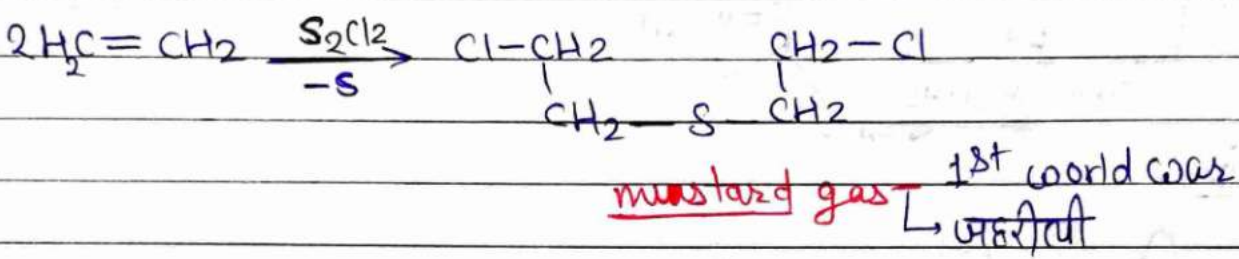 2H₂C = CH₂ S₂Cl₂ -S → Cl-CH₂ CH₂-Cl
CH₂-S-CH₂
mustard gas 1st world war
जहरीली